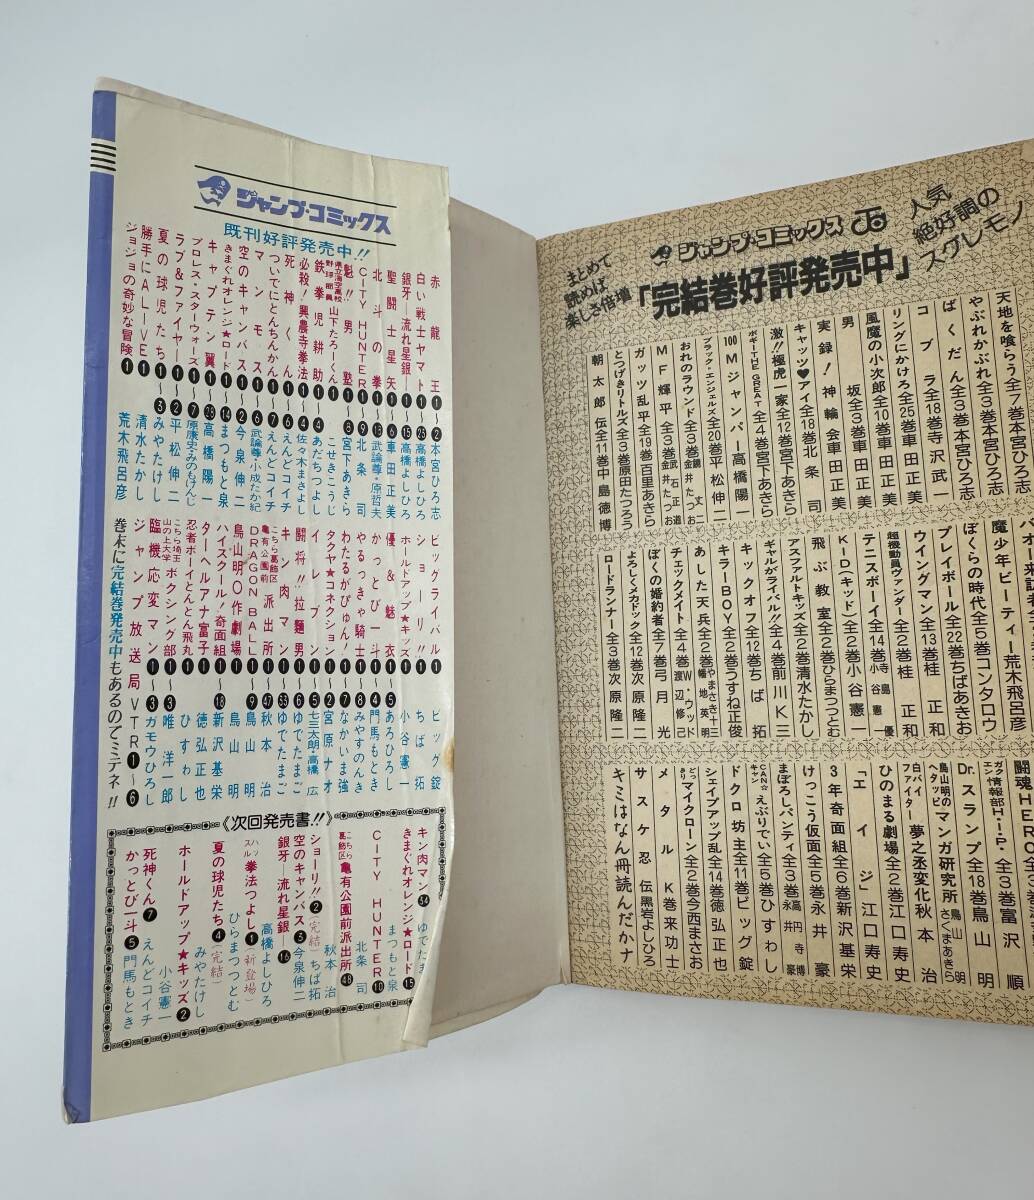 ジャンプ・コミックス
既刊好評発売中!!
赤龍王❶〜❷本宮ひろ志
白い戦士ヤマト❶〜㉓高橋よしひろ
銀牙―流れ星銀―❶〜⓯高橋よしひろ
聖闘士星矢❶〜❻車田正美
北斗の拳❶〜⓭武論尊・原哲夫
CITY HUNTER❶〜❾北条司
魁!!男塾❶〜❽宮下あきら
県立海空高校野球部員山下たろーくん❶ こせきこうじ
鉄拳児耕助❶ あだちつよし
必殺!興農寺拳法❶〜❹佐々木まさよし
死神くん❶〜❻えんどコイチ
ついでにとんちんかん❶〜❼えんどコイチ
マンモス❶〜❻武論尊・小成たか紀
空のキャンバス❶〜❷今泉伸二
きまぐれオレンジ★ロード❶〜⓮まつもと泉
キャプテン翼❶〜㉘高橋陽一
プロレス・スターウォーズ❶〜❼原康史・みのもけんじ
ラブ&ファイヤー❶〜❷平松伸二
夏の球児たち❶〜❸みやたけし
勝手にALIVE❶ 清水たかし
ジョジョの奇妙な冒険❶ 荒木飛呂彦
ビッグライバル❶ ビッグ錠
ショーリ!!❶ ちば拓
ホールドアップ★キッズ❶ 小谷憲一
優&魅衣❶〜❺あろひろし
かっとび一斗❶〜❹門馬もとき
やるっきゃ騎士❶〜❽みやすのんき
わたるがぴゅん!❶〜❼なかいま強
タクヤ★コネクション❶〜❷宮原ナオ
イレブン❶〜❺七三太朗・高橋広
闘将!!拉麵男❶〜❻ゆでたまご
キン肉マン❶〜㉝ゆでたまご
こちら葛飾区亀有公園前派出所❶〜㊼秋本治
DRAGON BALL❶〜❾鳥山明
鳥山明○作劇場❶ 鳥山明
ハイスクール!奇面組❶〜⓲新沢基栄
ターヘルアナ富子❶ 徳弘正也
忍者ボーイとんとん飛丸❶ ひすゎし
こちら埼玉山の上大学ボクシング部❶〜❸唯洋一郎
臨機応変マン❶〜❸ガモウひろし
ジャンプ放送局VTR❶〜❻
巻末に完結巻発売中もあるのでミテネ!!
《次回発売書!!》
キン肉マン㉞ ゆでたま
きまぐれオレンジ★ロード⓯ まつもと泉
CITY HUNTER❿ 北条司
こちら葛飾区亀有公園前派出所㊽ 秋本治
ショーリ!!❷(完結)ちば拓
空のキャンバス❸今泉伸二
銀牙―流れ星銀―⓰ 高橋よしひろ
ハッスル拳法つよし❶(新登場) ひらまつつとむ
夏の球児たち❹(完結) みやたけし
ホールドアップ★キッズ❷ 小谷憲一
死神くん❼ えんどコイチ
かっとび一斗❺門馬もとき
人気絶好調のスグレモノ
ジャンプ・コミックス
「完結巻好評発売中」
まとめて読めば楽しさ倍増
天地を喰らう全7巻本宮ひろ志
やぶれかぶれ全3巻本宮ひろ志
ばくだん全3巻本宮ひろ志
コブラ全18巻寺沢武一
リングにかけろ全25巻車田正美
風魔の小次郎全10巻車田正美
男坂全3巻車田正美
実録!神輪会車田正美
キャッツ♥アイ全18巻北条司
激!!極虎一家全12巻宮下あきら
ボギー THE GREAT全4巻宮下あきら
100Mジャンパー高橋陽一
ブラック・エンジェルズ全20巻平松伸二
おれのラウンド全3巻金井たつお
MF輝平全3巻武石正道 金井たつお
ガッツ乱平全19巻百里あきら
とつげきリトルズ全3巻原田たつろう
朝太郎伝全11巻中島徳博
魔少年ビーティー荒木飛呂彦
ぼくらの時代全5巻コンタロウ
プレイボール全22巻ちばあきお
ウイングマン全13巻桂正和
超機動員ヴァンダー全2巻桂正和
テニスボーイ全14巻寺島優 小谷憲一
KID(キッド)全2巻小谷憲一
飛ぶ教室全2巻ひらまつつとむ
アスファルトキッズ全2巻清水たかし
ギャルがライバル!!全4巻前川K三
キックオフ全12巻ちば拓
キラーBOY全2巻うすね正俊
あした天兵全2巻やまさき十三 幡地英明
チェックメイト全4巻W・ウッド 渡辺修己
ぼくの婚約者全7巻弓月光
よろしくメカドック全12巻次原隆二
ロードランナー全3巻次原隆二
闘魂HERO
ガクエン情報部H・I・P・全3巻富沢順
Dr.スランプ全18巻鳥山明
鳥山明のヘタッピマンガ研究所 鳥山明 さくまあきら
白バイファイター夢之丞変化秋本治
ひのまる劇場全2巻江口寿史
「エイジ」江口寿史
3年奇面組全6巻新沢基栄
けっこう仮面全5巻永井豪
まぼろしパンティ全3巻高円寺博 永井豪
CAN☆キャンえぶりでい全5巻ひすゎし
ドクロ坊主全11巻ビッグ錠
シェイプアップ乱全14巻徳弘正也
どっこうマイクローン全2巻今西まさお
メタルK巻来功士
サスケ忍伝黒岩よしひろ
キミはなん冊読んだカナ